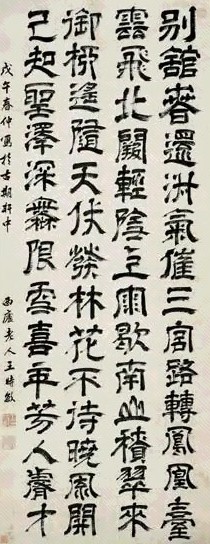 別館春還淑氣催三宮路轉鳳凰臺
雲飛北闕輕陰散雨歇南山積翠來
御柳遙隨天仗發林花不待曉風開
已知聖澤深無限更喜年芳入睿才
戊午春仲寫於古期軒中
西廬老人王時敏